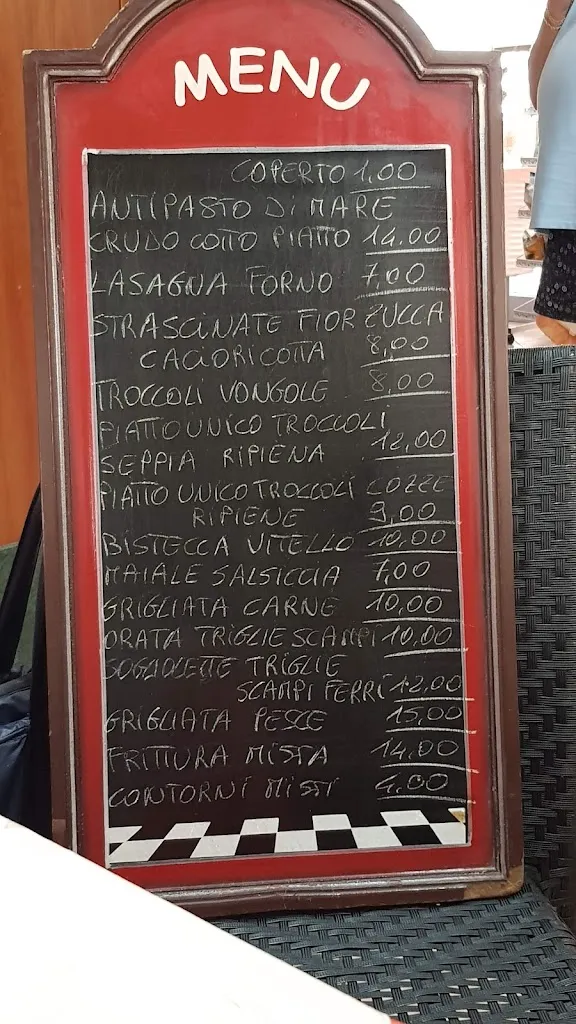 MENU
COPERTO 1,00
ANTIPASTO DI MARE
CRUDO COTTO PIATTO 14.00
LASAGNA FORNO 7,00
STRASCINATE FIOR ZUCCA
CACIORICOTTA 8,00
TROCCOLI VONGOLE 8,00
PIATTO UNICO TROCCOLI
SEPPIA RIPIENA 12,00
PIATTO UNICO TROCCOLI COZZE
RIPIENE 9,00
BISTECCA VITELLO 10,00
MAIALE SALSICCIA 7,00
GRIGLIATA CARNE 10,00
ORATA TRIGLIE SCAMPI 10,00
SOGLIOLETTE TRIGLIE
SCAMPI FERRI 12,00
GRIGLIATA PESCE 15,00
FRITTURA MISTA 14.00
CONTORNI MISTI 4.00